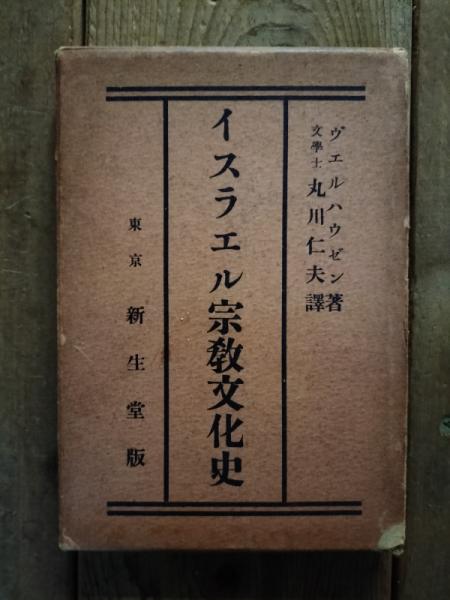 ヴエルハウゼン著
文學士 丸川仁夫譯
イスラエル宗教文化史
東京 新生堂版